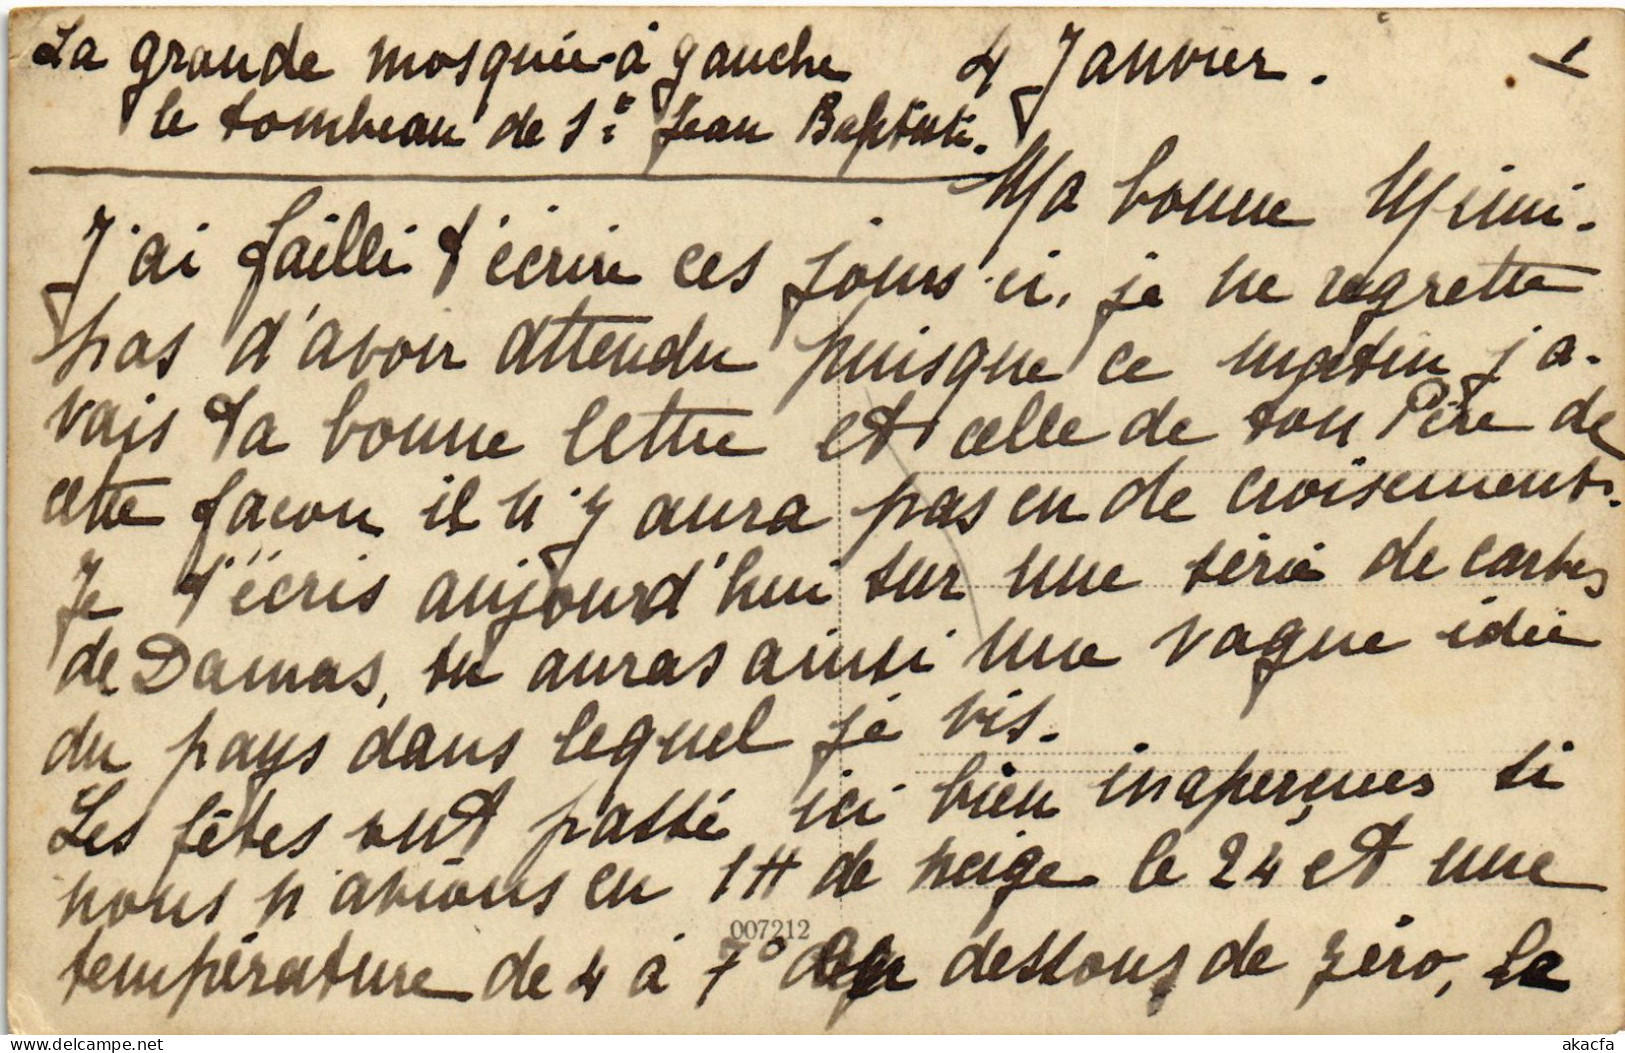 La grande mosquée à gauche 4 Janvier. 1
le tombeau de St Jean Baptiste.
Ma bonne Mimi.
J'ai failli t'écrire ces jours-ci, je ne regrette
pas d'avoir attendu puisque ce matin j'a-
vais ta bonne lettre et celle de ton Père de
cette façon il n'y aura pas eu de croisements.
Je t'écris aujourd'hui sur une série de cartes
de Damas, tu auras ainsi une vague idée
du pays dans lequel je vis.
Les fêtes ont passé ici bien inaperçues si
nous n'avions eu 1m de neige le 24 et une
007212
température de 4 à 7° au dessous de zéro, le
akacfa